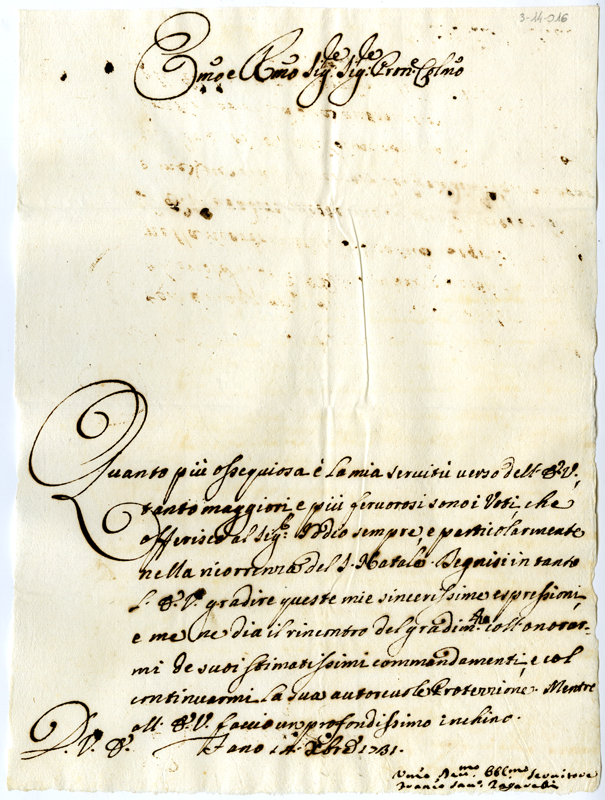 3-14-016
Emo e Rmo Sig.re Sig.re Pron.e Colmo
Quanto più ossequiosa è la mia servitù verso dell' E. V.,
tanto maggiori, e più fervorosi sono i Voti, che
offerisco al Sig.re Iddio sempre, e particolarmente
nella ricorrenza del S. Natale. Degnisi in tanto
L' E. V. gradire queste mie sincerissime espressioni,
e me ne dia il rincontro del gradim.to coll' onorar-
mi de suoi stimatissimi commandamenti, e col
continuarmi la sua autorevole Protezzione. Mentre
all' E. V. faccio un profondissimo inchino.
D. V. E. Fano 14 Xbre 1731.
Umo Dev.mo Obl.mo Servitore